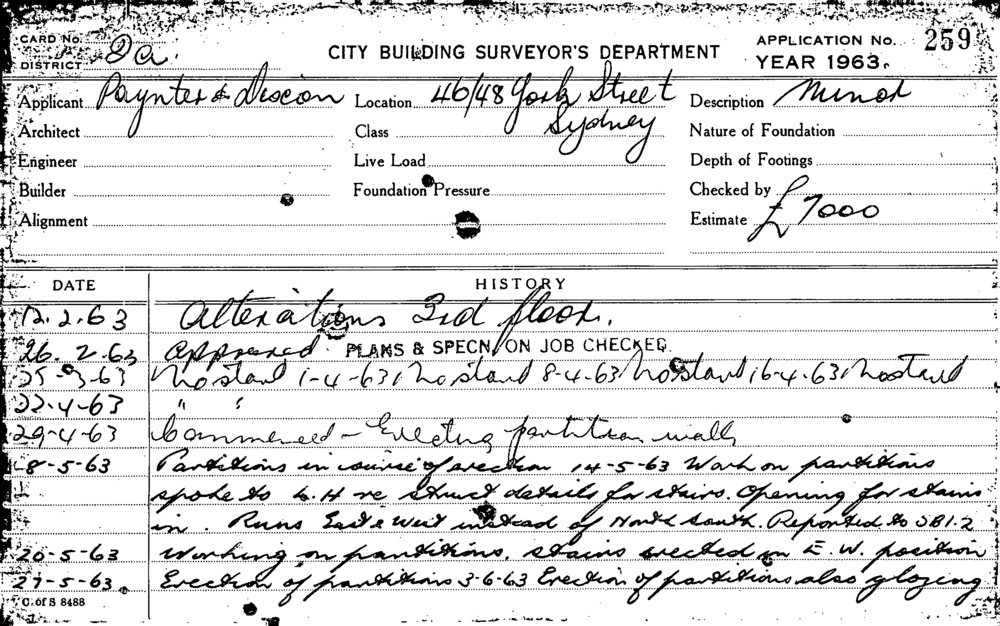 CARD No.
DISTRICT 2a.
CITY BUILDING SURVEYOR'S DEPARTMENT
APPLICATION No. 259
YEAR 1963.
Applicant Paynter & Dixon Location 46/48 York Street Description Minor
Architect Class Sydney Nature of Foundation
Engineer Live Load Depth of Footings
Builder Foundation Pressure Checked by
Alignment Estimate £7000
DATE HISTORY
12.2.63 Alterations 3rd floor.
26.2.63 Approved. PLANS & SPECN. ON JOB CHECKED
25-3-63 No start 1-4-63, No start 8-4-63, No start, 16-4-63, No start
22-4-63 " "
29-4-63 Commenced - Erecting partition walls
8-5-63 Partitions in course of erection 14-5-63 Work on partitions
spoke to L.H re struct details for stairs. Opening for stairs
in. Runs East & West instead of North South. Reported to SBI.2
20-5-63 Working on partitions, stairs erected in E.W. position
27-5-63 Erection of partitions 3-6-63 Erection of partitions also glazing
C. of S 8488